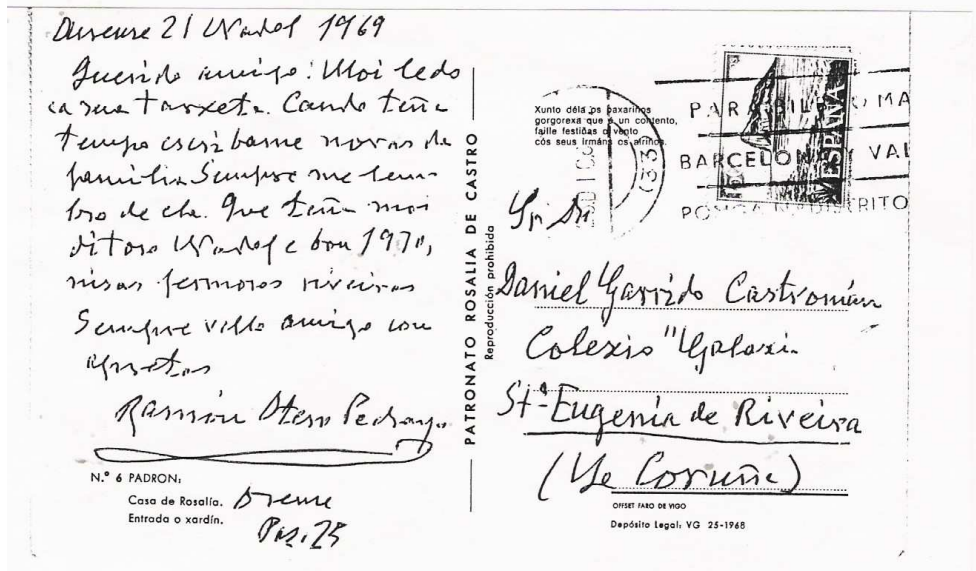 Ourense 21 Nadal 1969
Querido amigo: Moi ledo
ca sua tarxeta. Cando teña
tempo escríbame novas da
familia Sempre me lem-
bro de ela. Que teña moi
ditoso Nadal e bon 1970,
nisas fermosas riveiras
Sempre vello amigo con
Ramón Otero Pedrayo
N.º 6 PADRON:
Casa de Rosalía.
Entrada o xardín.
Orense
Paz. 25
PATRONATO ROSALIA DE CASTRO
Reproducción prohibida
Xunto déla os paxariños
gorgorexa que é un contento,
faille festiñas o vento
cós seus irmáns os airiños.
ESPAÑA
BARCELONA Y VAL
PONGA DISTRITO
Sr. Dn
Daniel Garrido Castromán
Colexio "Galaxia
Stª Eugenia de Riveira
(La Coruña)
OFFSET FARO DE VIGO
Depósito Legal: VG 25-1968